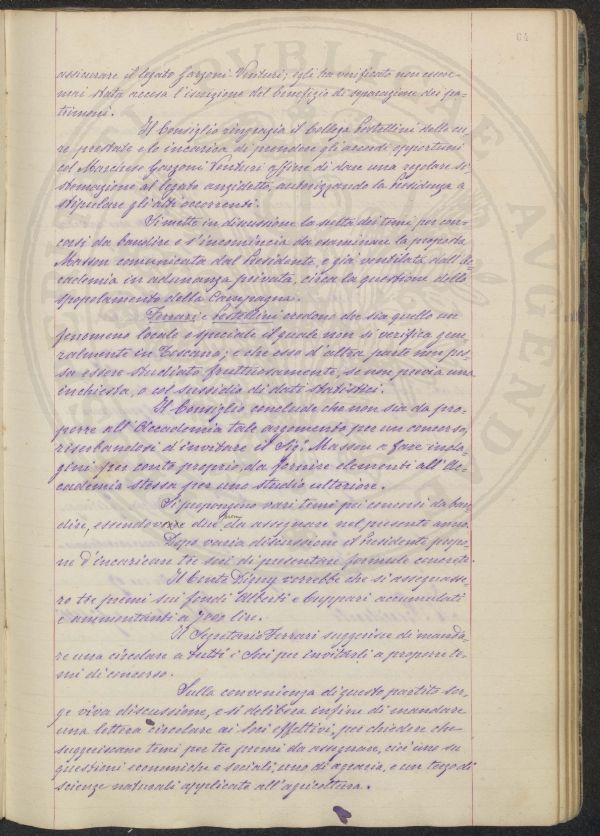 64
assicurare il legato Garzoni Venturi; egli ha verificato non essere
mai stata accesa l'iscrizione del benefizio di separazione dei pa-
trimoni.
Il Consiglio ringrazia il Collega Pestellini delle cu-
re prestate e lo incarica di prendere gli accordi opportuni
col Marchese Garzoni Venturi affine di dare una regolare si-
stemazione al legato anzidetto, autorizzando la Presidenza a
stipulare gli atti occorrenti.
Si mette in discussione la scelta dei temi per con-
corsi da bandire e s'incomincia da esaminare la proposta
Masson comunicata dal Presidente, e già ventilata dall'Ac-
cademia in adunanza privata, circa la questione dello
spopolamento della Campagna.
Ferrari e Pestellini credono che sia quello un
fenomeno locale e speciale il quale non si verifica gene-
ralmente in Toscana; e che esso d'altra parte non pos-
sa essere studiato fruttuosamente, se non previa una
inchiesta, o col sussidio di dati statistici.
Il Consiglio conclude che non sia da pro-
porre all'Accademia tale argomento per un concorso,
riserbandosi d'invitare il Sig. Masson a fare inda-
gini per conto proprio, da fornire elementi all'Ac-
cademia stessa per uno studio ulteriore.
Si propongono vari temi pei concorsi da ban-
dire, essendovene due premi da assegnare nel presente anno.
Dopo varia discussione il Presidente propo-
ne d'incaricare tre soci di presentare formule concrete.
Il Conte Digny vorrebbe che si assegnasse-
ro tre premi sui fondi Alberti e Cuppari accumulati
e ammontanti a 3000 lire.
Il Segretario Ferrari suggerisce di manda-
re una circolare a tutti i Soci per invitarli a proporre te-
mi di concorso.
Sulla convenienza di questo partito sor-
ge viva discussione, e si delibera infine di mandare
una lettera circolare ai Soci effettivi, per chiedere che
suggeriscano temi per tre premi da assegnare, cioè uno su
questioni economiche e sociali, uno di agraria, e un terzo di
scienze naturali applicate all'agricoltura.